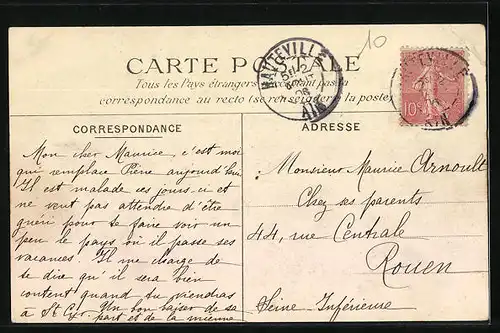 10
HAUTEVILLE
AIN
10
CARTE POSTALE
Tous les Pays étrangers n'acceptent pas la
correspondance au recto (se renseigner à la poste)
CORRESPONDANCE
Mon cher Maurice, c'est moi
qui remplace Pierre aujourd'hui
Il est malade ces jours-ci et
ne veut pas attendre d'être
guéri pour te faire voir un
peu le pays où il passe ses
vacances. Il me charge de
te dire qu'il sera bien
content quand tu viendras
à St Cyr. Un bon baiser de sa
part et de la mienne
ADRESSE
Monsieur Maurice Arnoult
Chez ses parents
44, rue Centrale
Rouen
Seine Inférieure